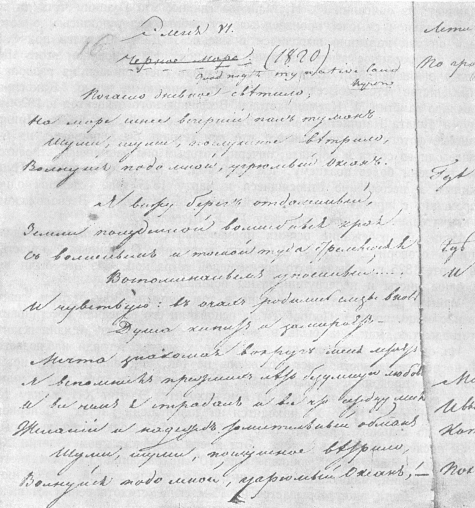 Элегія VI.
16
Черное море (1820)
Good night my native land
Byron
Погасло дневное свѣтило;
На море синее вечерній палъ туманъ
Шуми, шуми, послушное вѣтрило,
Волнуйся подо мной, угрюмый Океанъ.
Я вижу берегъ отдаленный,
Земли полуденной волшебныя края
Съ волненьемъ и тоской туда стремлюся я
Воспоминаньемъ упоенный....
И чувствую: въ очахъ родились слезы вновь
Душа кипитъ и замираетъ
Мечта знакомая вокругъ меня летаетъ
Я вспомнилъ прежнихъ лѣтъ безумную любовь
И все чѣмъ я страдалъ и все что сердцу мило
Желаній и надеждъ томительный обманъ
Шуми, шуми, послушное вѣтрило,
Волнуйся подо мной, угрюмый Океанъ! —
Лети
По гро
Гдѣ
Гдѣ
И